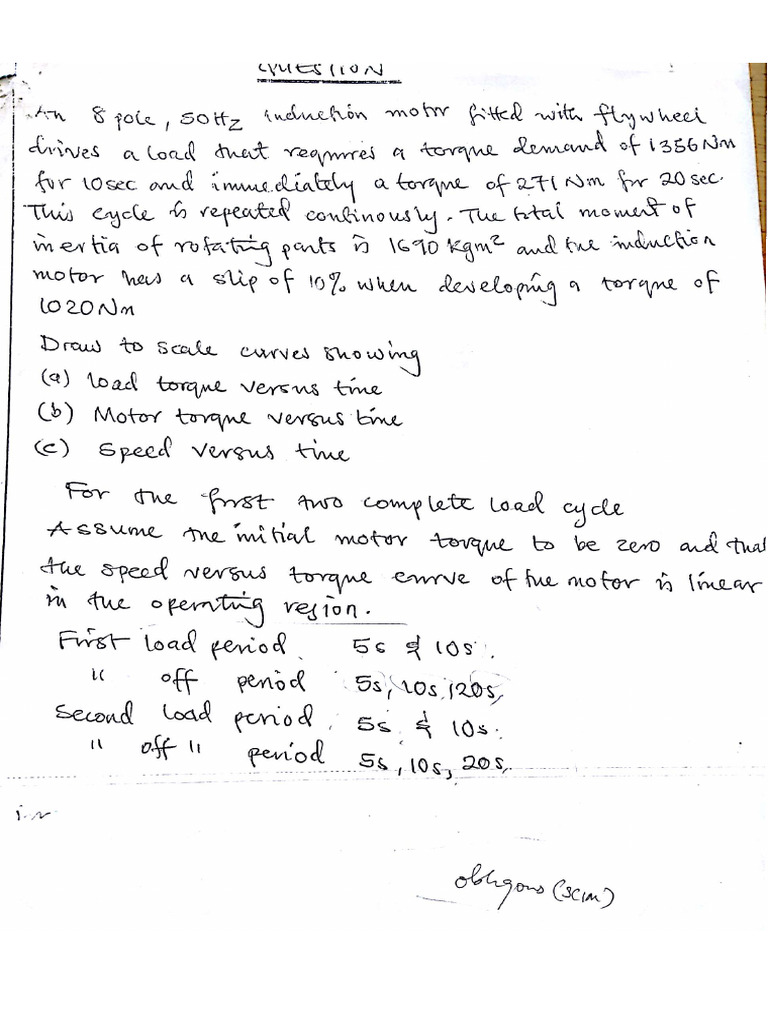 QUESTION
An 8 pole, 50Hz induction motor fitted with flywheel
drives a load that requires a torque demand of 1356Nm
for 10sec and immediately a torque of 271Nm for 20sec.
This cycle is repeated continously. The total moment of
inertia of rotating parts is 1690 kgm² and the induction
motor has a slip of 10% when developing a torque of
1020Nm
Draw to scale curves showing
(a) Load torque versus time
(b) Motor torque versus time
(c) Speed versus time
For the first two complete load cycle
Assume the initial motor torque to be zero and that
the speed versus torque curve of the motor is linear
in the operating region.
First load period 5s & 10s.
" off period 5s, 10s, 20s,
Second load period. 5s & 10s.
" off " period 5s, 10s, 20s,
(SCIM)